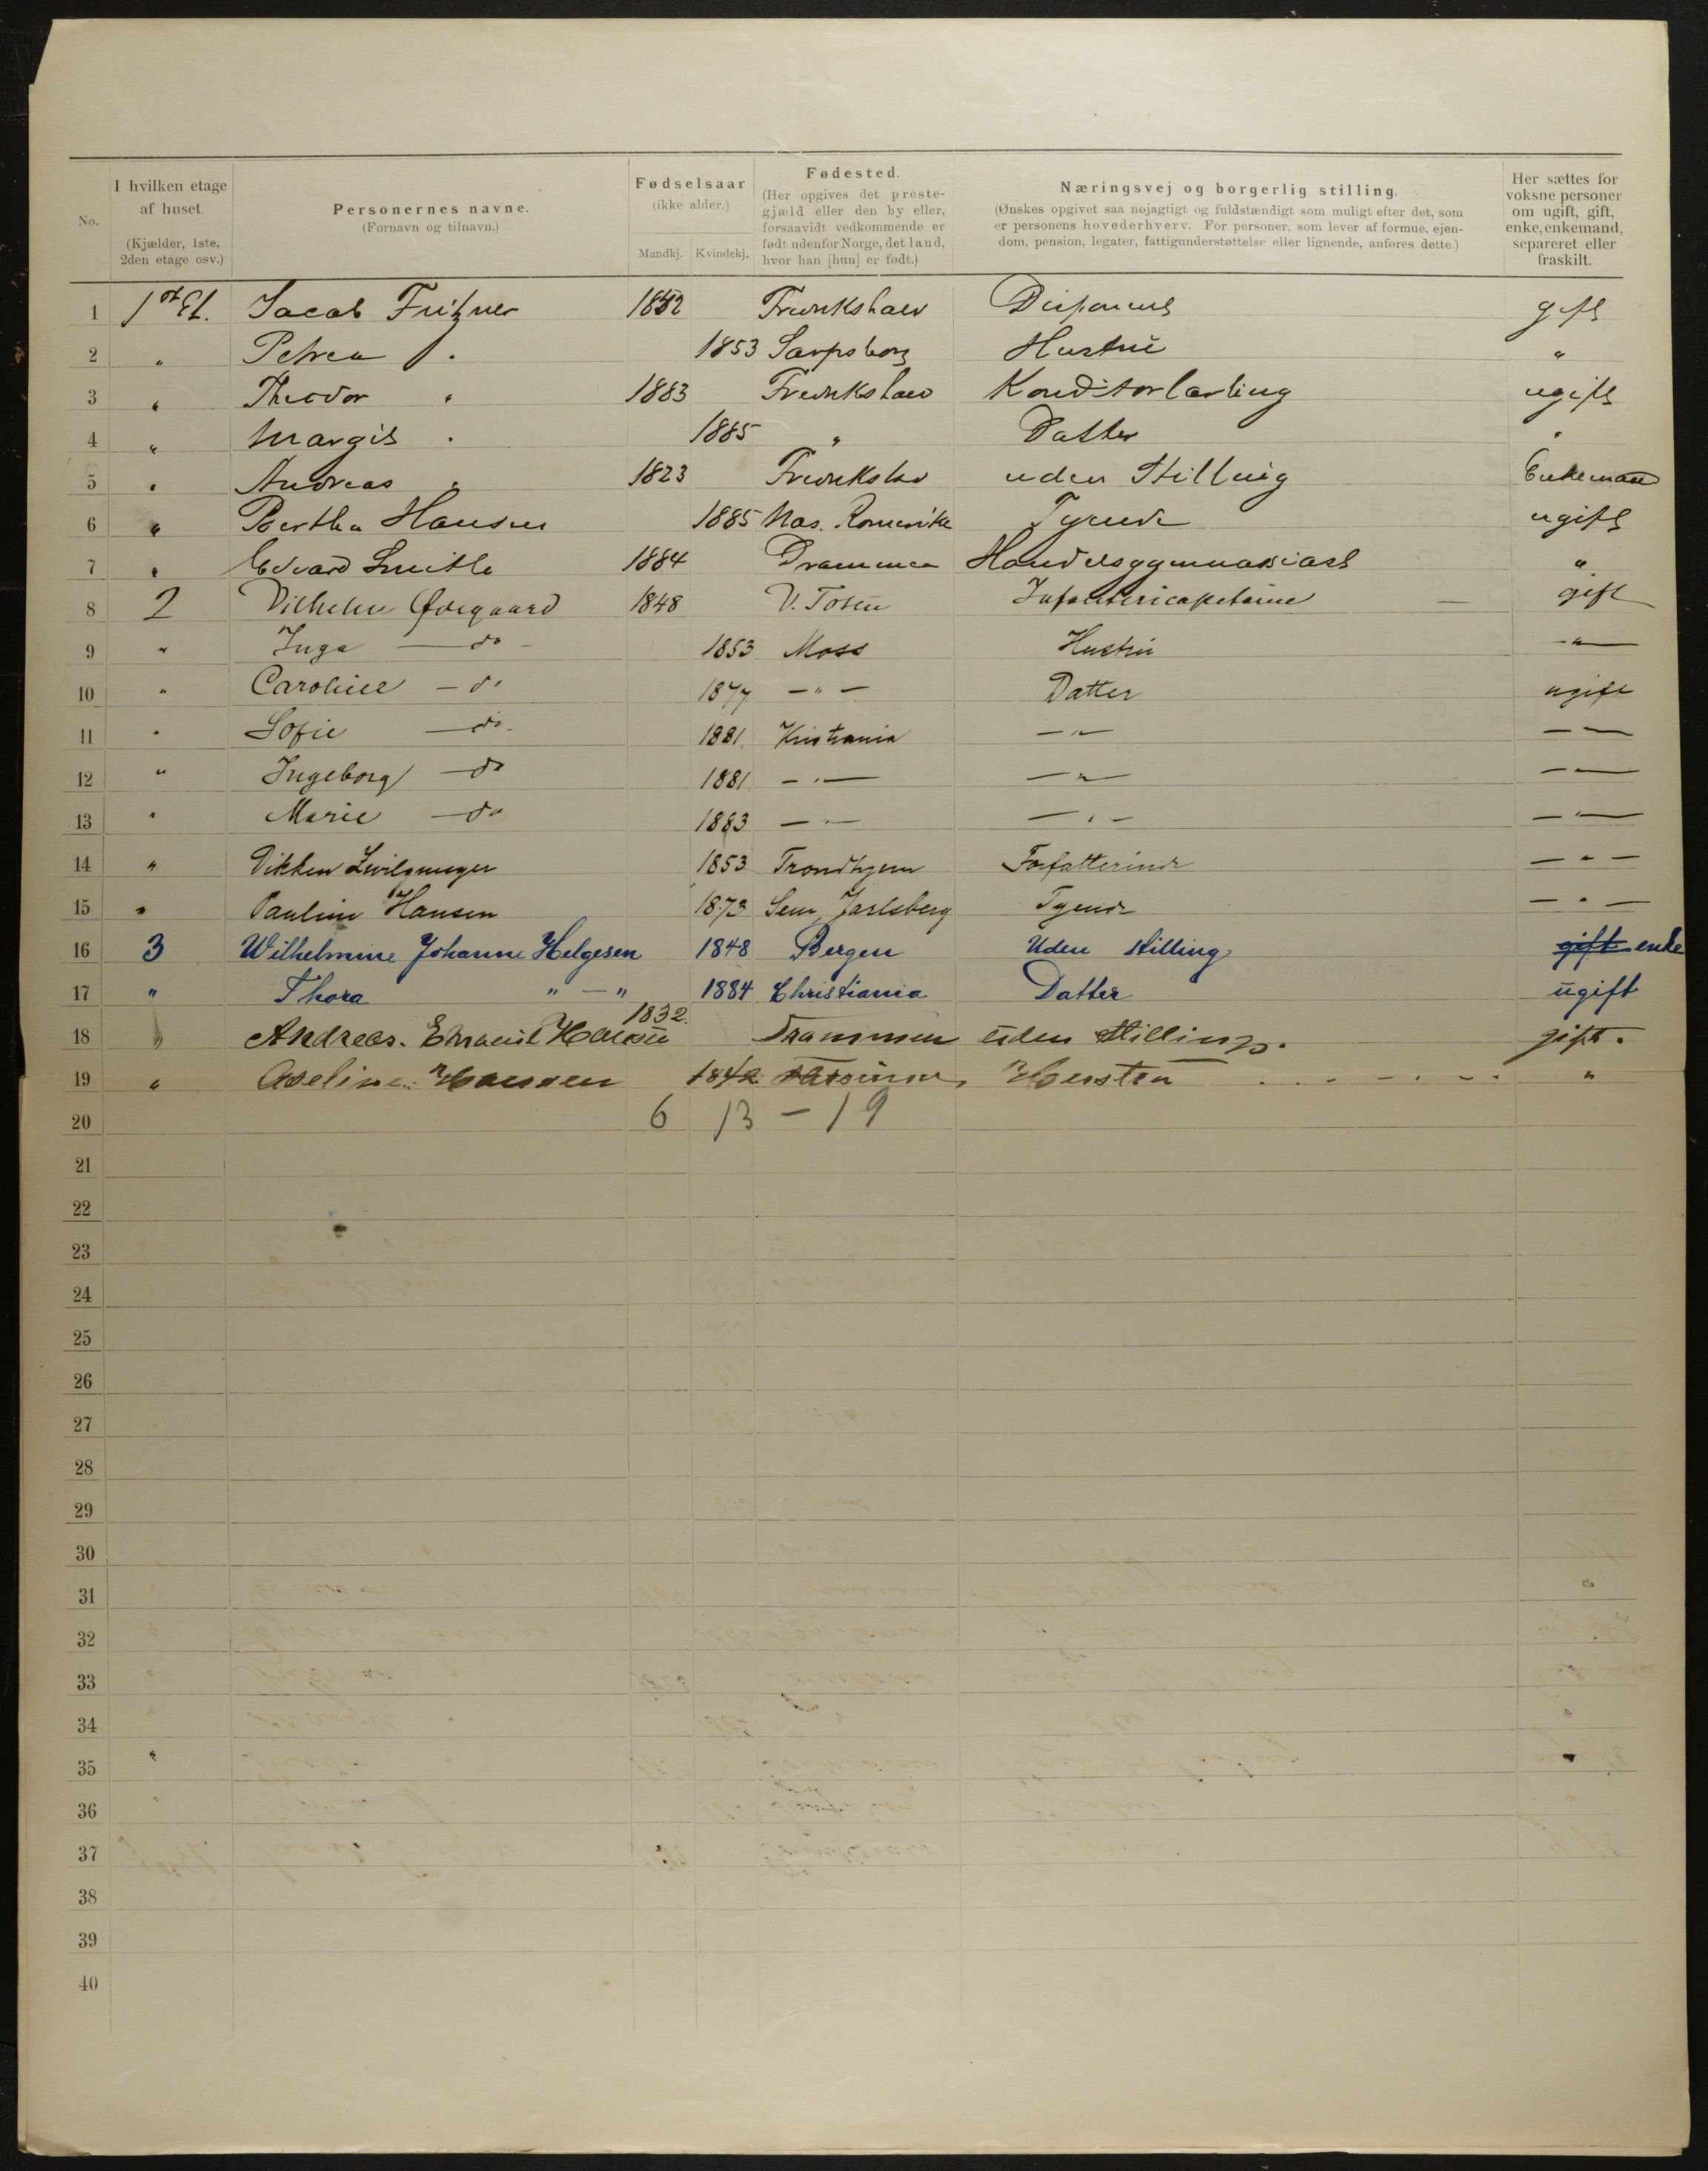 No.
I hvilken etage af huset.
(Kjælder, 1ste, 2den etage osv.)
Personernes navne.
(Fornavn og tilnavn.)
Fødselsaar
(ikke alder.)
Mandkj. Kvindekj.
Fødested.
(Her opgives det preste-
gjæld eller den by eller,
forsaavidt vedkommende er
født udenfor Norge, det land,
hvor han [hun] er født.)
Næringsvej og borgerlig stilling.
(Ønskes opgivet saa nøjagtigt og fuldstændigt som muligt efter det, som
er personens hovederhverv. For personer, som lever af formue, ejen-
dom, pension, legater, fattigunderstøttelse eller lignende, anføres dette.)
Her sættes for
voksne personer
om ugift, gift,
enke, enkemand,
separeret eller
fraskilt.
1 1st Et. Jacob Fritzner 1852 Fredrikshald Disponent gift
2 " Petrea " 1853 Sarpsborg Hustru "
3 " Theodor " 1883 Fredrikshald Konditorlærling ugift
4 " Margit " 1885 " Datter "
5 " Andreas " 1823 Fredrikshald uden Stilling Enkemand
6 " Bertha Hansen 1885 Næs. Romerike Tyende ugift
7 " Edvard Smith 1884 Drammen Handelsgymnasiast "
8 2 Vilhelm Ødegaard 1848 V. Toten Infantericapetaine — gift
9 " Inga — do - 1853 Moss Hustru — " —
10 " Caroline — do 1877 — " — Datter ugift
11 " Sofie — do. 1881 Kristiania — " — — " —
12 " Ingeborg — do 1881 — " — — " — — " —
13 " Marie — do 1883 — " — — " — — " —
14 " Dikken Zwilgmeyer 1853 Trondhjem Forfatterinde — " —
15 " Pauline Hansen 1873 Sem, Jarlsberg Tyende — " —
16 3 Wilhelmine Johanne Helgesen 1848 Bergen Uden stilling gift enke
17 " Thora " — " 1884 Christiania Datter ugift
18 " Andreas. Hansen 1832. Drammen uden Stilling. gift.
19 " Hansen 1842 "
20 6 13 – 19
21
22
23
24
25
26
27
28
29
30
31
32
33
34
35
36
37
38
39
40